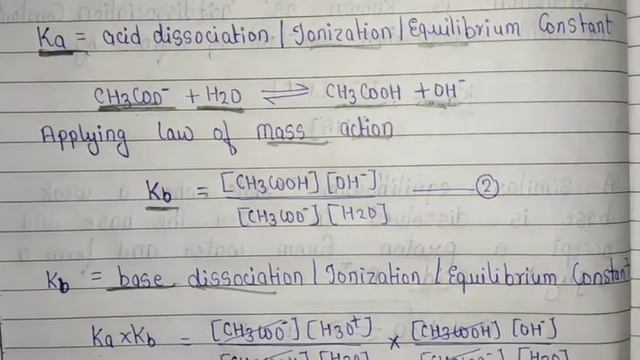 Ka = acid dissociation / Ionization / Equilibrium Constant
CH3COO⁻ + H2O ⇌ CH3COOH + OH⁻
Applying law of mass action
Kb = [CH3COOH] [OH⁻] / [CH3COO⁻] [H2O] ②
Kb = base dissociation / Ionization / Equilibrium Constant
Ka x Kb = [CH3COO⁻] [H3O⁺] × [CH3COOH] [OH⁻]